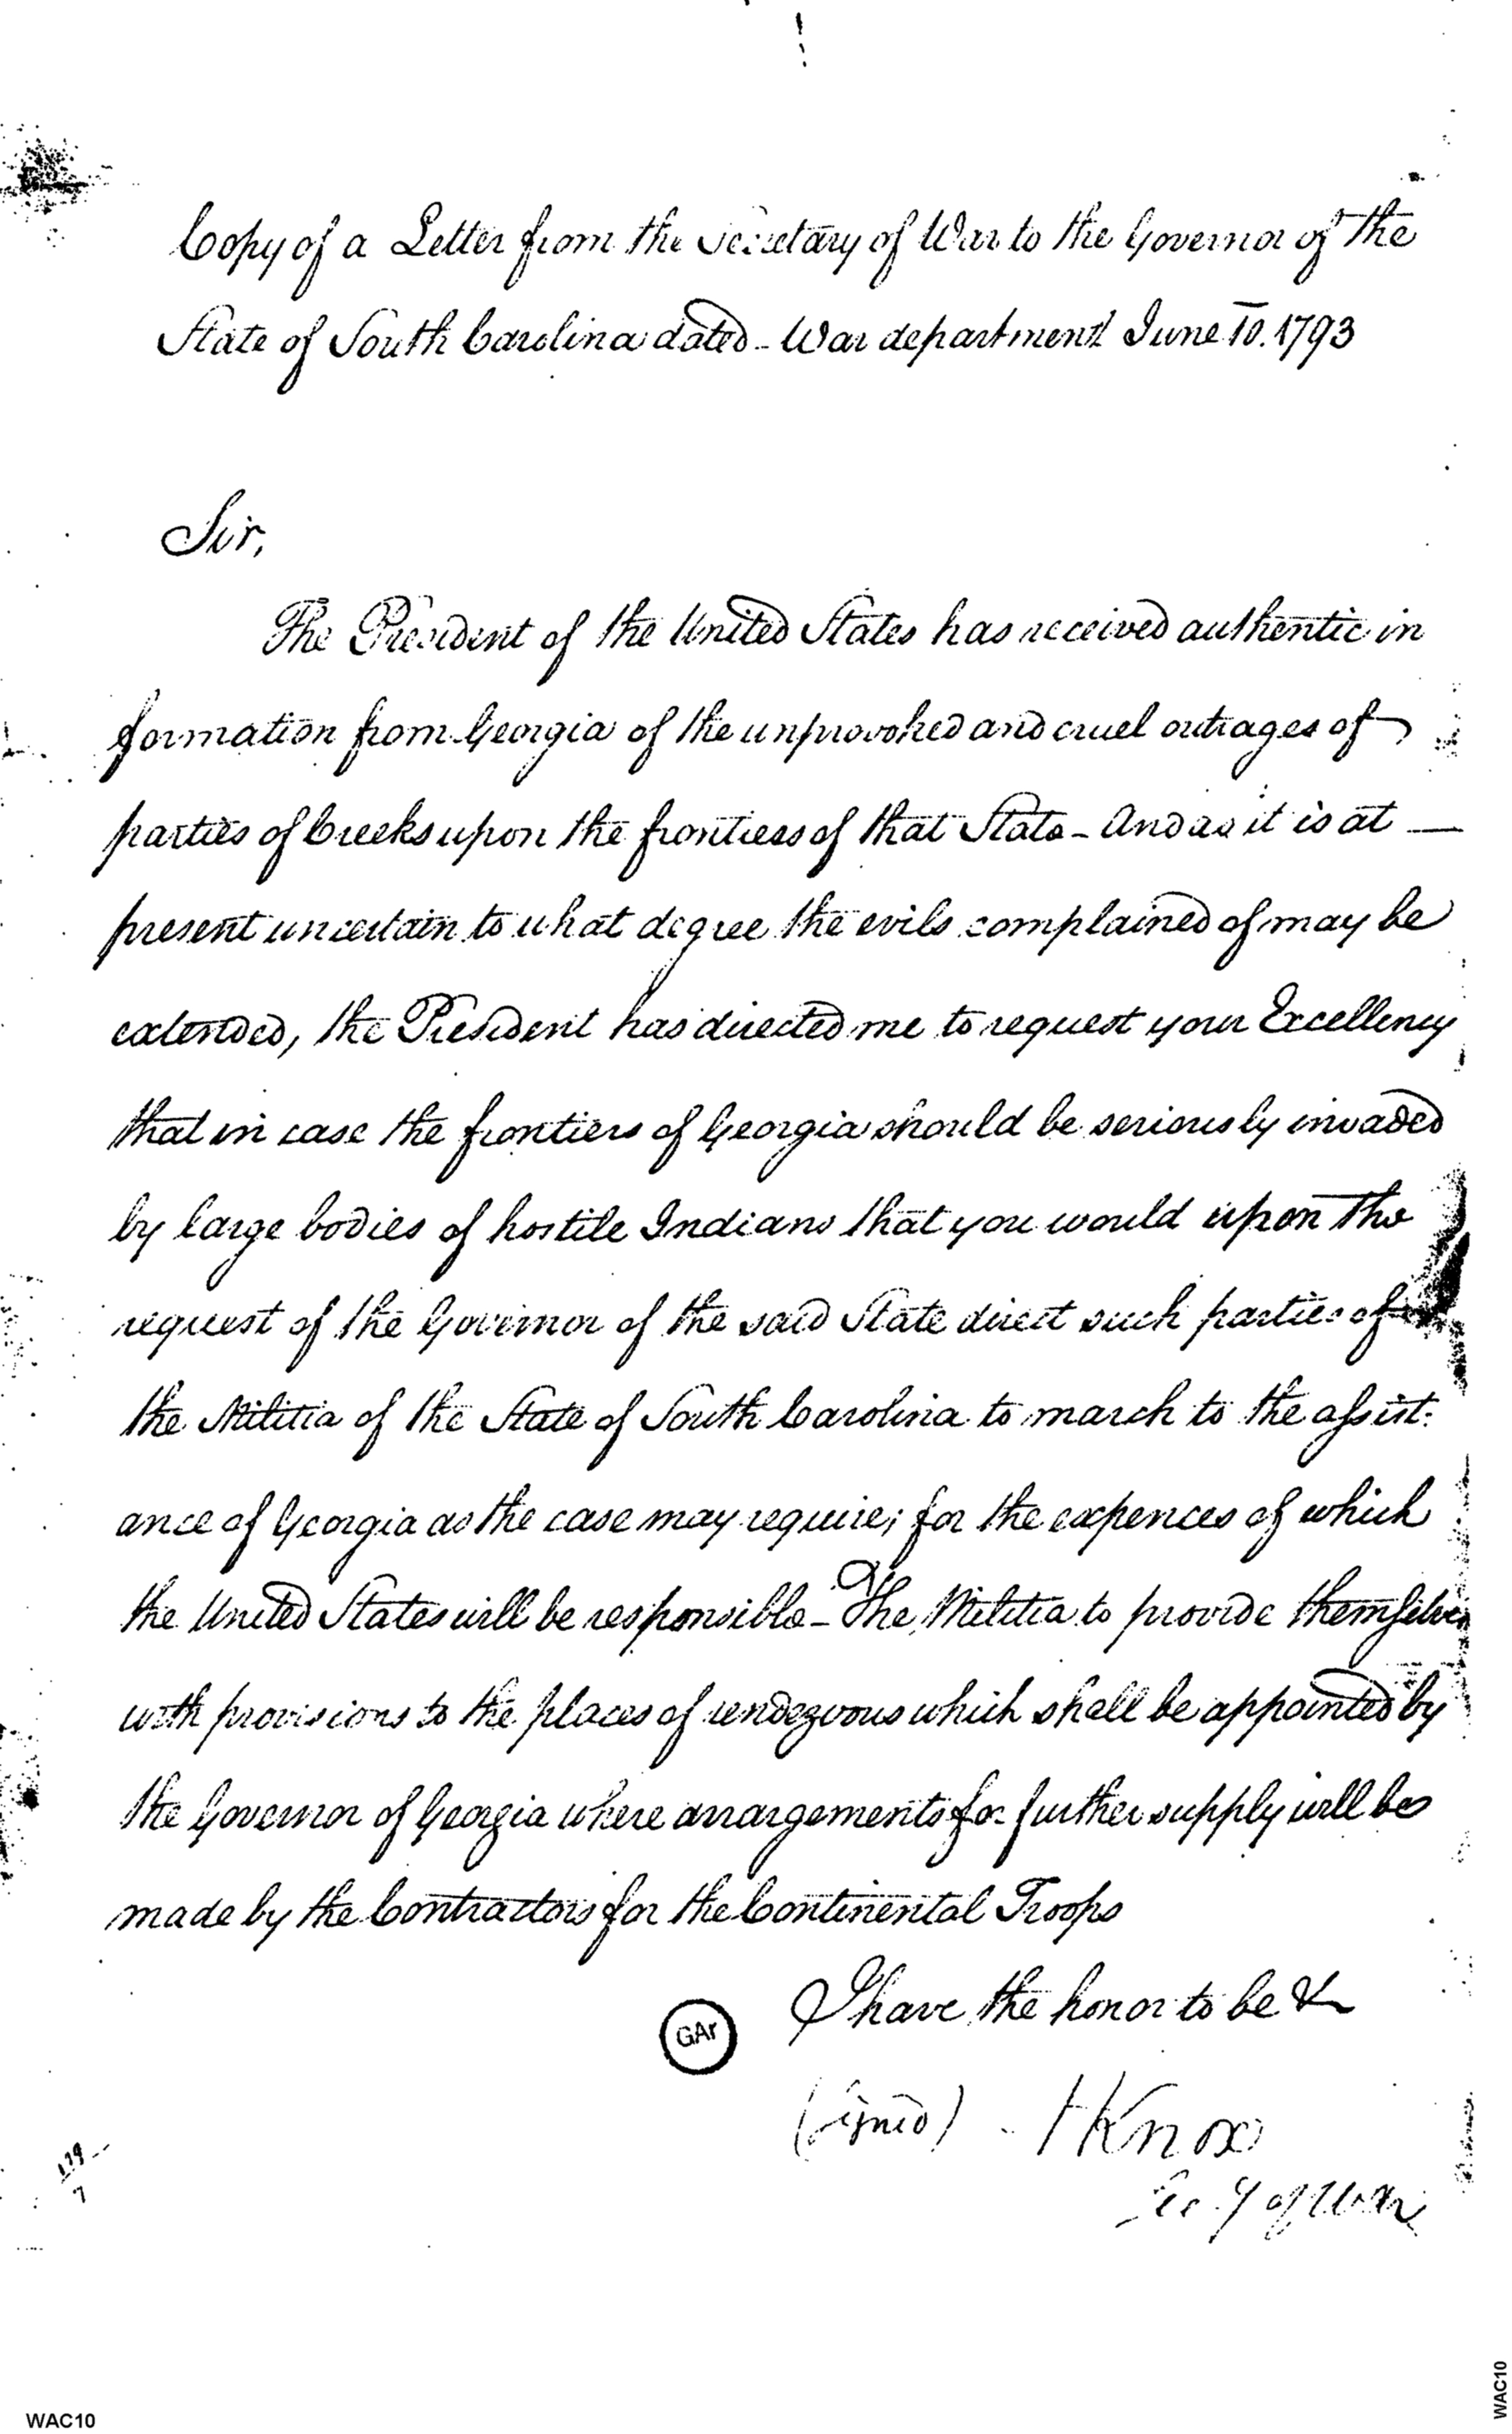 Copy of a Letter from the Secretary of War to the Governor of the
State of South Carolina dated - War department June 10. 1793
Sir,
The President of the United States has received authentic in
formation from Georgia of the unprovoked and cruel outrages of
parties of Creeks upon the frontiers of that State - And as it is at —
present uncertain to what degree the evils complained of may be
extended, the President has directed me to request your Excellency
that in case the frontiers of Georgia should be seriously invaded
by large bodies of hostile Indians that you would upon the
request of the Governor of the said State direct such parties of
the Militia of the State of South Carolina to march to the assist:
ance of Georgia as the case may require; for the expences of which
the United States will be responsible - The Militia to provide themselves
with provisions to the places of rendezvous which shall be appointed by
the Governor of Georgia where arrangements for further supply will be
made by the Contractors for the Continental Troops
I have the honor to be &
GAr
(signed) - HKnox
Secy of War
179
7
WAC10
WAC10